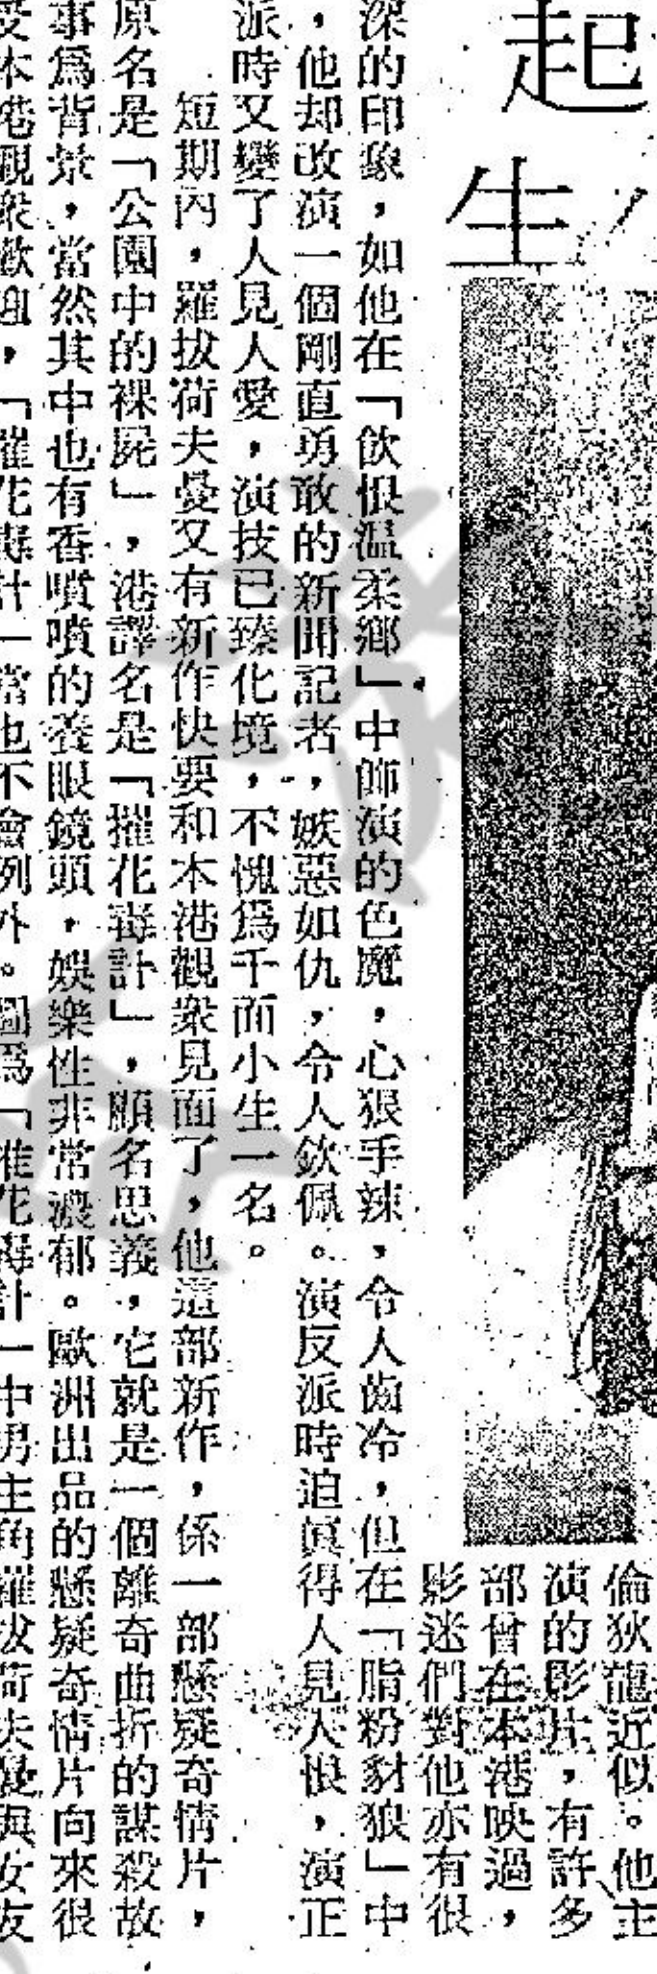 起
生
倫狄龍近似。他主
演的影片，有許多
部曾在本港映過，
影迷們對他亦有很
深的印象，如他在「飲恨温柔鄉」中飾演的色魔，心狠手辣，令人齒冷，但在「脂粉豺狼」中
，他却改演一個剛直勇敢的新聞記者，嫉惡如仇，令人欽佩。演反派時迫眞得人見人恨，演正
派時又變了人見人愛，演技已臻化境，不愧爲千面小生一名。
短期內，羅拔荷夫曼又有新作快要和本港觀衆見面了，他這部新作，係一部懸疑奇情片，
原名是「公園中的裸屍」，港譯名是「摧花毒計」，顧名思義，它就是一個離奇曲折的謀殺故
事爲背景，當然其中也有香噴噴的養眼鏡頭，娛樂性非常濃郁。歐洲出品的懸疑奇情片向來很
受本港觀衆歡迎，「摧花毒計」當也不會例外。圖爲「摧花毒計」中男主角羅拔荷夫曼與女友